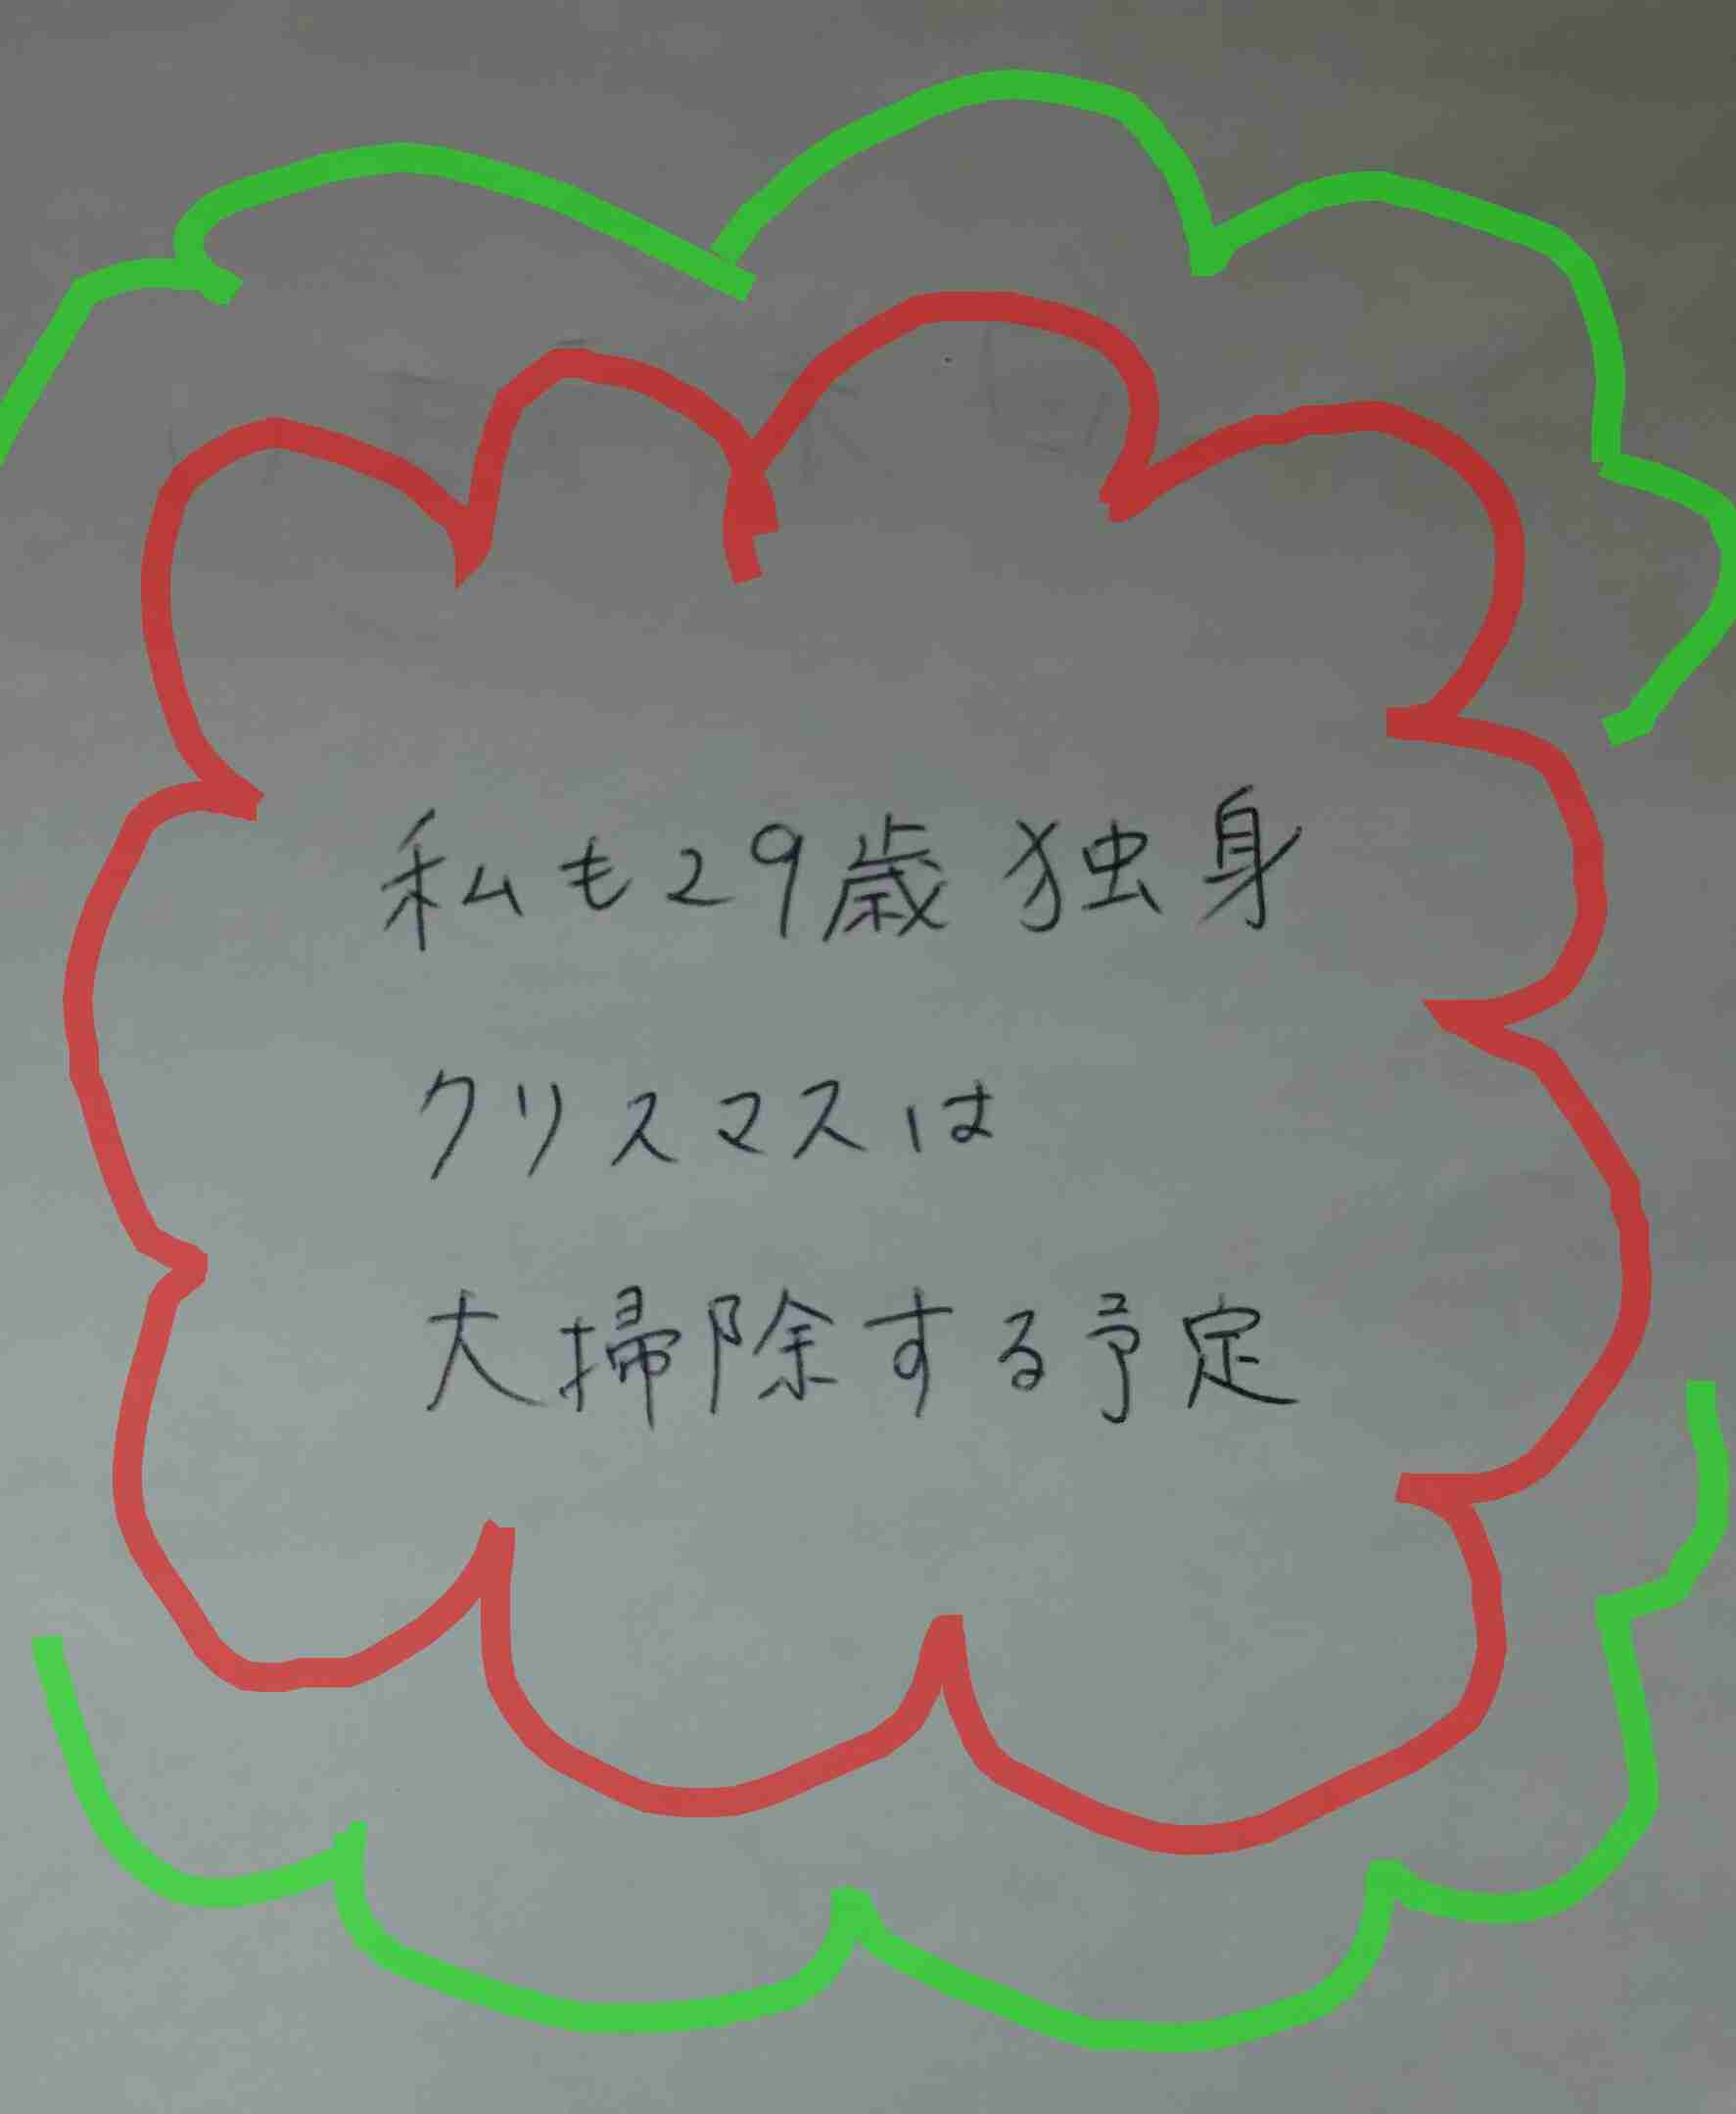 私も29歳独身
クリスマスは
大掃除する予定